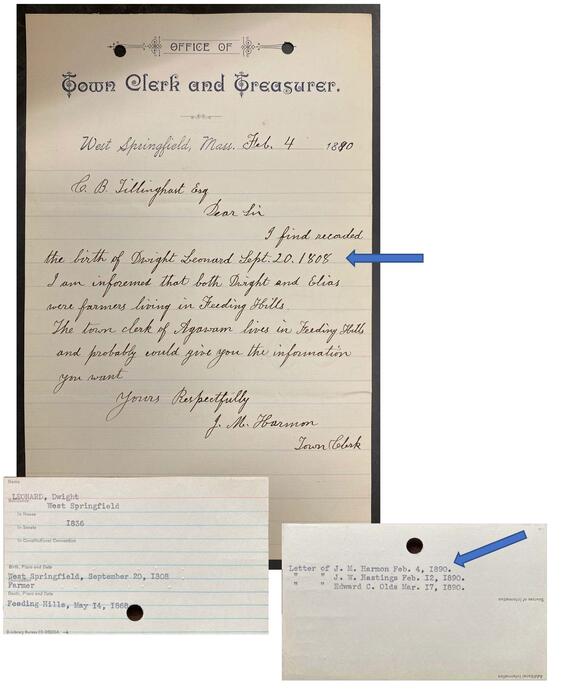 OFFICE OF
Town Clerk and Treasurer.
West Springfield, Mass. Feb. 4 1890
C. B. Tillinghast Esq
Dear Sir
I find recorded
the birth of Dwight Leonard Sept. 20. 1808
I am informed that both Dwight and Elias
were farmers living in Feeding Hills.
The town clerk of Agawam lives in Feeding Hills
and probably could give you the information
you want
Yours Respectfully
J. M. Harmon
Town Clerk
Name
LEONARD, Dwight
Residence
West Springfield
In House
1836
In Senate
In Constitutional Convention
Birth, Place and Date
West Springfield, September 20, 1808
Farmer
Death, Place and Date
Feeding Hills, May 14, 1868
Library Bureau
Letter of J. M. Harmon Feb. 4, 1890.
" " J. W. Hastings Feb. 12, 1890.
" " Edward C. Olds Mar. 17, 1890.
Sources of Information
Additional Information